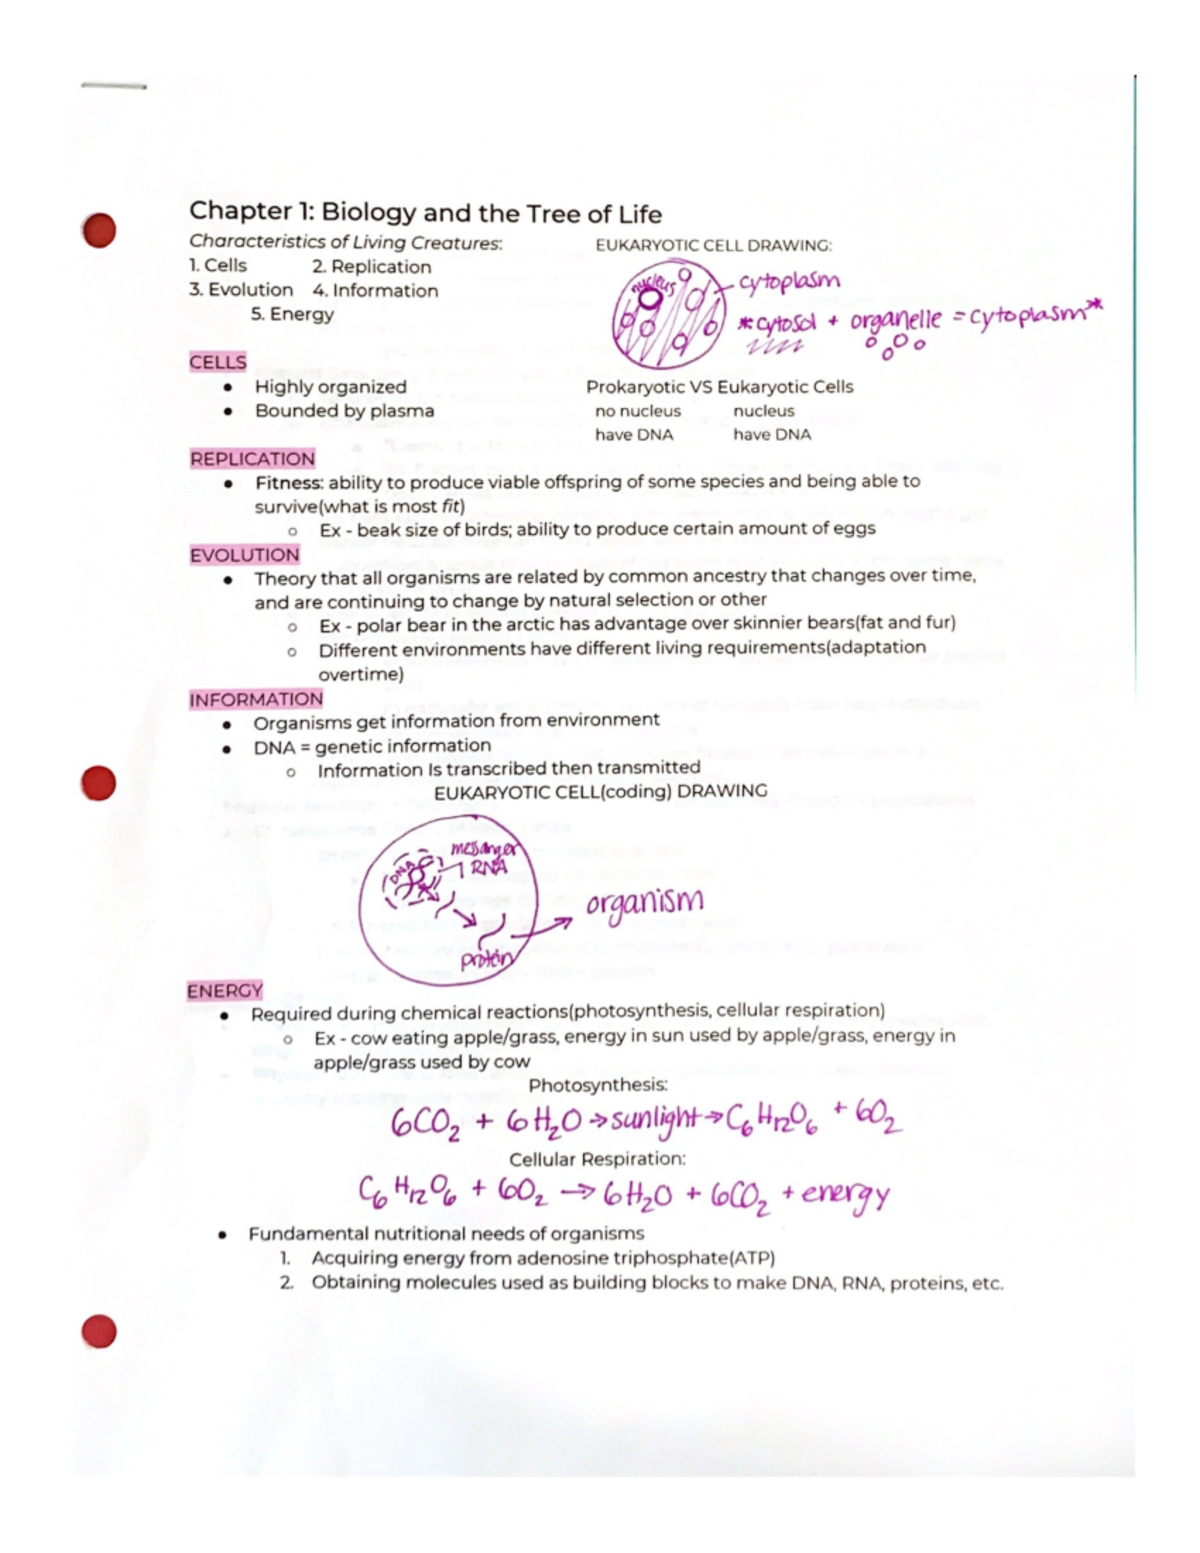 Chapter 1: Biology and the Tree of Life
Characteristics of Living Creatures:
1. Cells 2. Replication
3. Evolution 4. Information
5. Energy
EUKARYOTIC CELL DRAWING:
nucleus
cytoplasm
*cytosol + organelle = cytoplasm*
CELLS
● Highly organized
● Bounded by plasma
Prokaryotic VS Eukaryotic Cells
no nucleus nucleus
have DNA have DNA
REPLICATION
● Fitness: ability to produce viable offspring of some species and being able to
survive(what is most fit)
○ Ex - beak size of birds; ability to produce certain amount of eggs
EVOLUTION
● Theory that all organisms are related by common ancestry that changes over time,
and are continuing to change by natural selection or other
○ Ex - polar bear in the arctic has advantage over skinnier bears(fat and fur)
○ Different environments have different living requirements(adaptation
overtime)
INFORMATION
● Organisms get information from environment
● DNA = genetic information
○ Information Is transcribed then transmitted
EUKARYOTIC CELL(coding) DRAWING
messanger
RNA
DNA
organism
protein
ENERGY
● Required during chemical reactions(photosynthesis, cellular respiration)
○ Ex - cow eating apple/grass, energy in sun used by apple/grass, energy in
apple/grass used by cow
Photosynthesis:
6CO₂ + 6H₂O → sunlight → C₆H₁₂O₆ + 6O₂
Cellular Respiration:
C₆H₁₂O₆ + 6O₂ → 6H₂O + 6CO₂ + energy
● Fundamental nutritional needs of organisms
1. Acquiring energy from adenosine triphosphate(ATP)
2. Obtaining molecules used as building blocks to make DNA, RNA, proteins, etc.